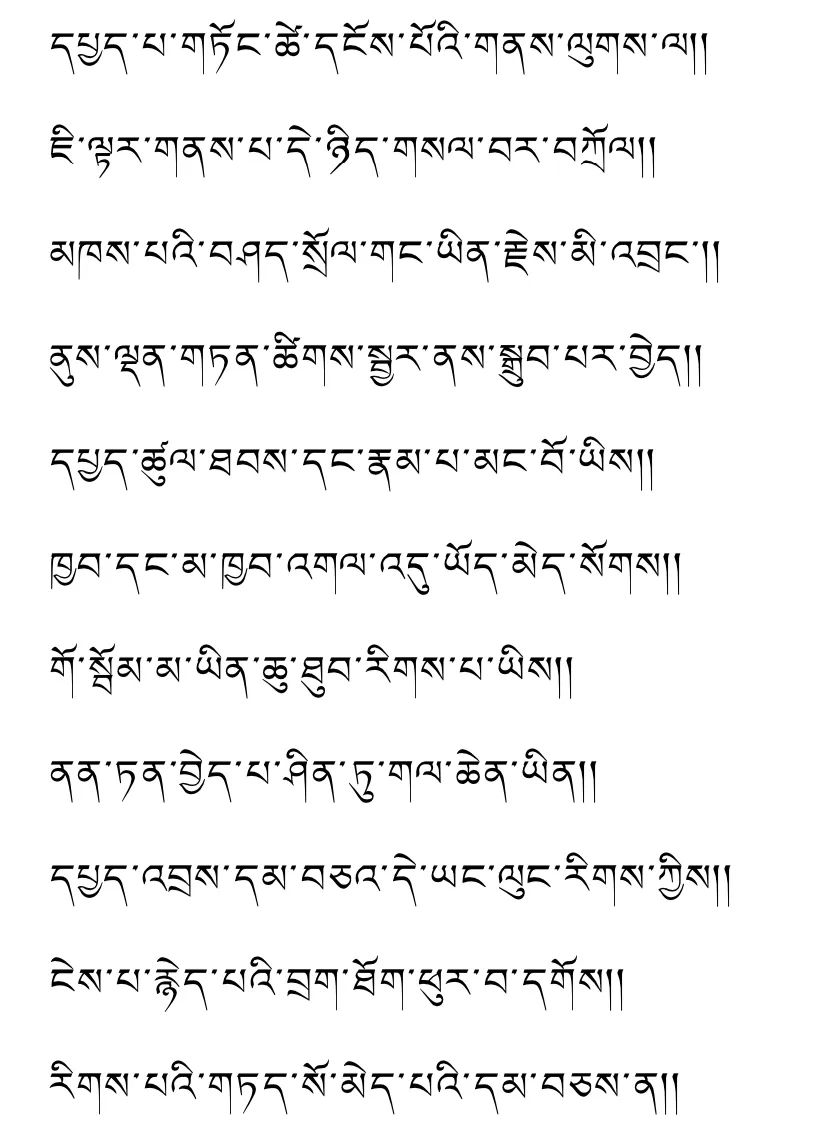 དཔྱད་པ་གཏོང་ཚེ་དངོས་པོའི་གནས་ལུགས་ལ།།
ཇི་ལྟར་གནས་པ་དེ་ཉིད་གསལ་བར་བཀྲོལ།།
མཁས་པའི་བཤད་སྲོལ་གང་ཡིན་རྗེས་མི་འབྲང་།།
ནུས་ལྡན་གཏན་ཚིགས་སྦྱར་ནས་སྒྲུབ་པར་བྱེད།།
དཔྱད་ཚུལ་ཐབས་དང་རྣམ་པ་མང་པོ་ཡིས།།
ཁྱབ་དང་མ་ཁྱབ་འགལ་འདུ་ཡོད་མེད་སོགས།།
གོ་སྡོམ་མ་ཡིན་ཆུ་ཐུབ་རིགས་པ་ཡིས།།
ནན་ཏན་བྱེད་པ་ཤིན་ཏུ་གལ་ཆེན་ཡིན།།
དཔྱད་འབྲས་དམ་བཅའ་དེ་ཡང་ལུང་རིགས་ཀྱིས།།
ངེས་པ་རྙེད་པའི་བྲག་ཐོག་ཕུར་བ་དགོས།།
རིགས་པའི་གཏད་སོ་མེད་པའི་དམ་བཅས་ན།།